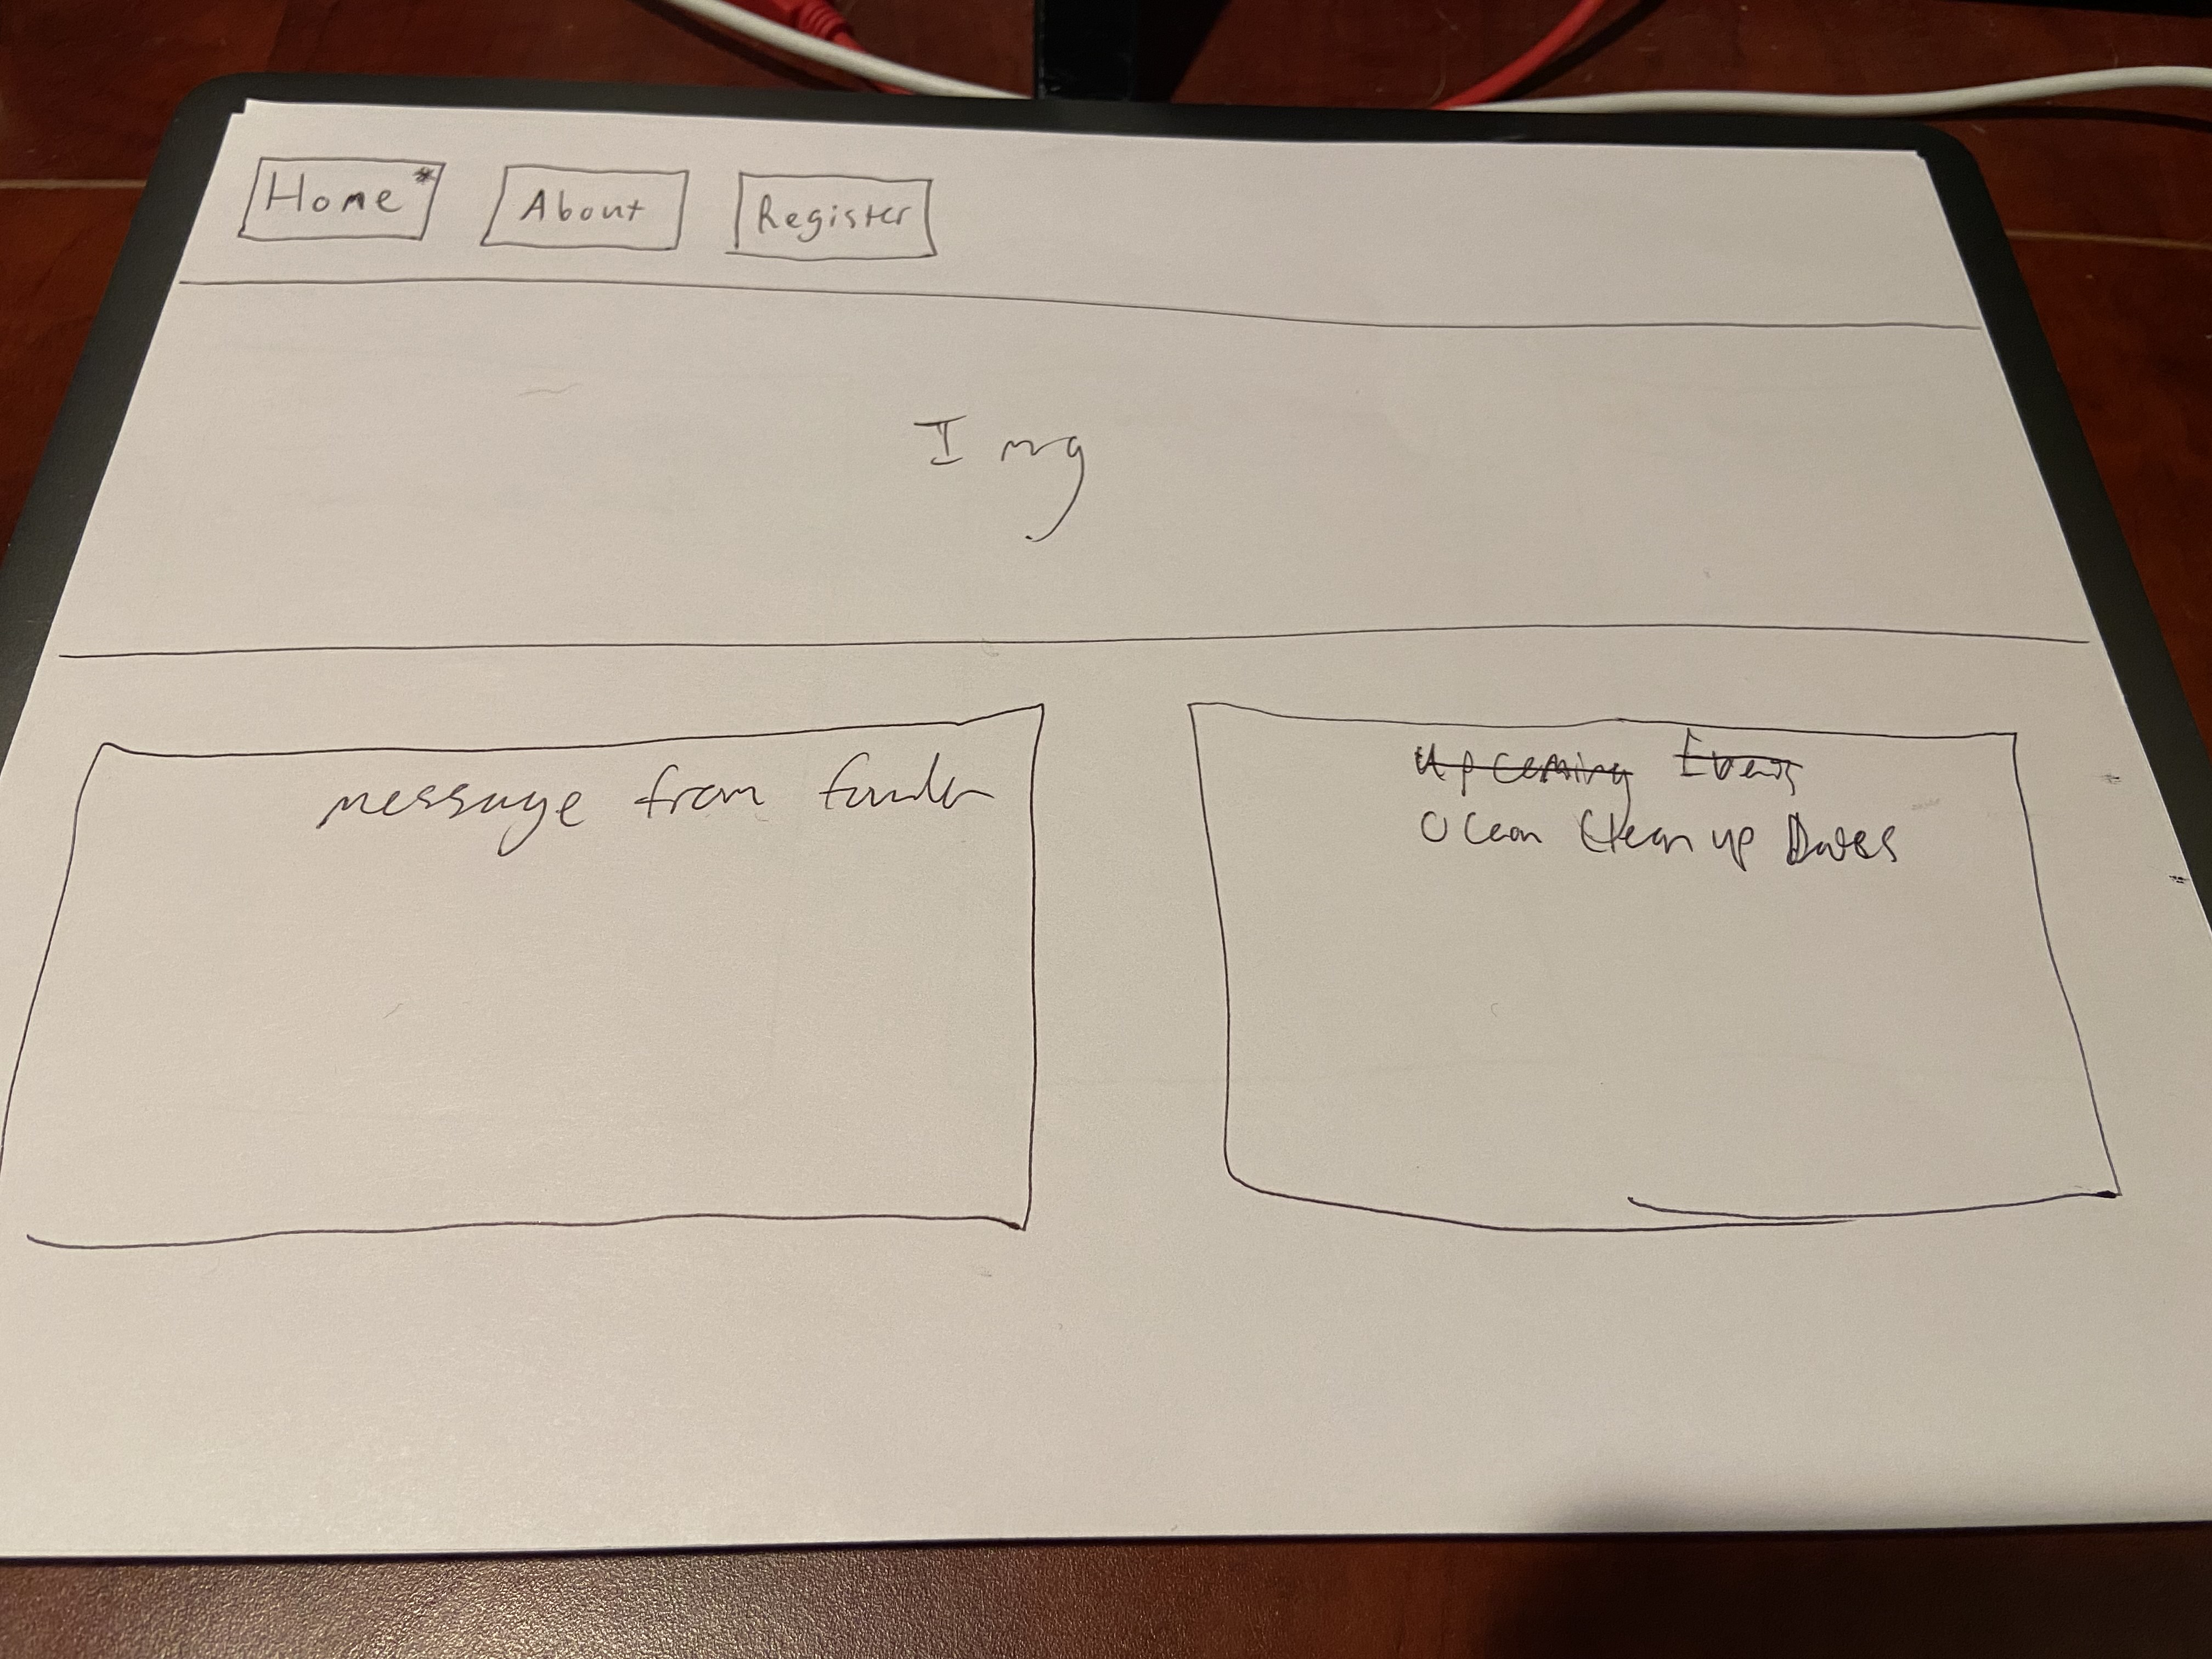 Home*
About
Register
Img
message from funder
upcoming Events
Ocean Clean up Dates